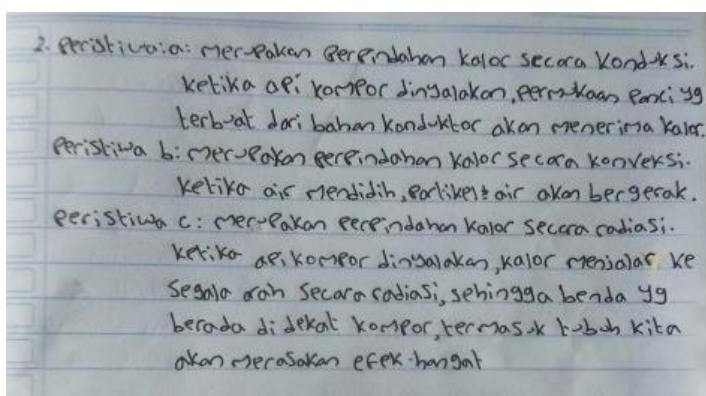 2. Peristiwa a: merupakan perpindahan kalor secara konduksi.
ketika api kompor dinyalakan, permukaan panci yg
terbuat dari bahan konduktor akan menerima kalor.
Peristiwa b: merupakan perpindahan kalor secara konveksi.
ketika air mendidih, partikel² air akan bergerak.
Peristiwa c: merupakan perpindahan kalor secara radiasi.
ketika api kompor dinyalakan, kalor menjalar ke
segala arah secara radiasi, sehingga benda yg
berada di dekat kompor, termasuk tubuh kita
akan merasakan efek hangat